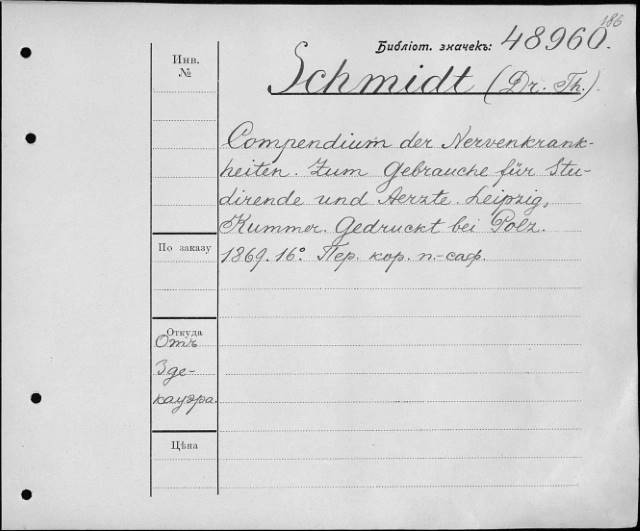 186
Библіот. значекъ: 48960.
Инв.
№
Schmidt (Dr. Th.).
Compendium der Nervenkrank-
heiten. Zum Gebrauche für Stu-
direnden und Aerzte. Leipzig,
Kummer. Gedruckt bei Polz.
1869. 16° Пер. кор. п.-саф.
По заказу
Откуда
Отъ
Зде-
кауэра.
Цѣна